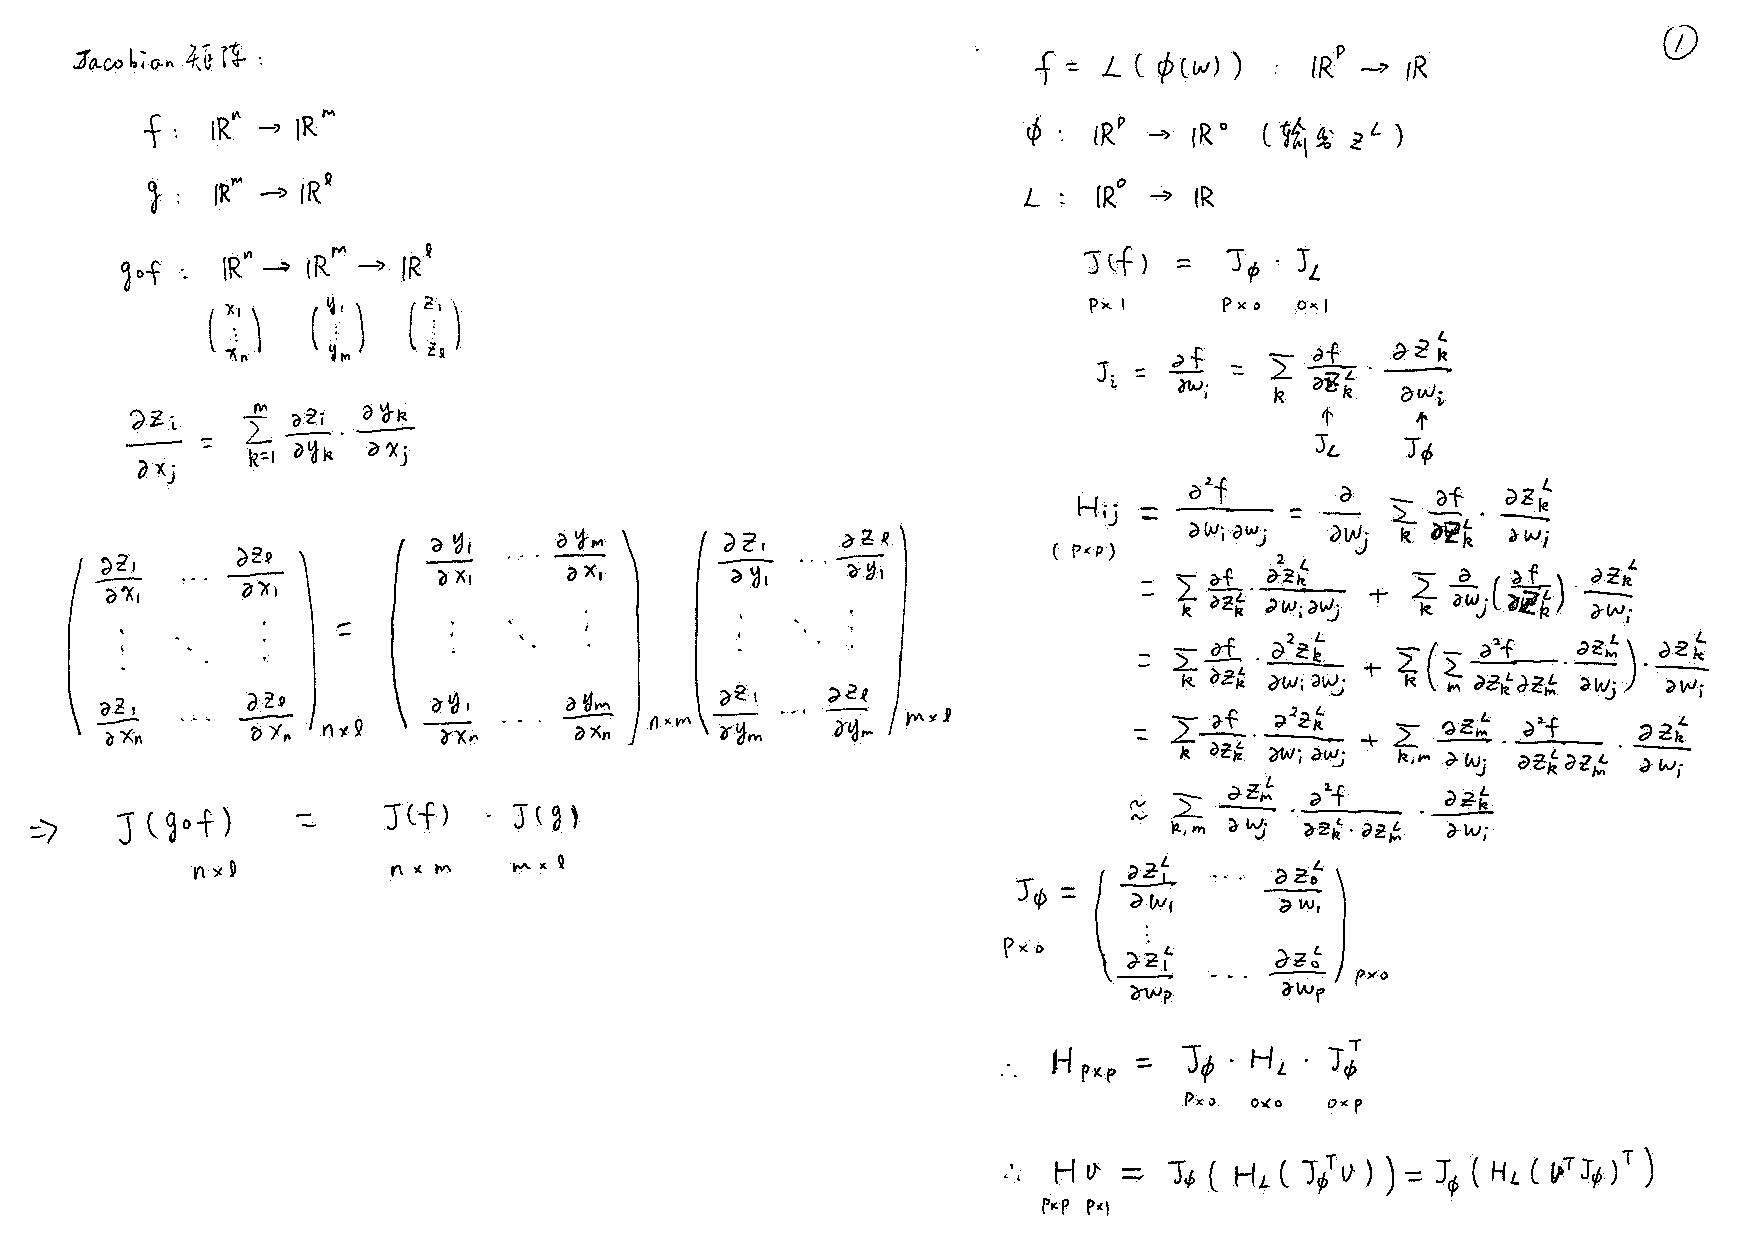 Jacobian 矩阵:
f: ℝⁿ → ℝᵐ
g: ℝᵐ → ℝˡ
g∘f: ℝⁿ → ℝᵐ → ℝˡ
(x₁ ⋮ xₙ) (y₁ ⋮ yₘ) (z₁ ⋮ zₗ)
∂zᵢ/∂xⱼ = Σ_{k=1}^{m} ∂zᵢ/∂yₖ · ∂yₖ/∂xⱼ
(∂z₁/∂x₁ ⋯ ∂zₗ/∂x₁ ⋮ ⋱ ⋮ ∂z₁/∂xₙ ⋯ ∂zₗ/∂xₙ)_{n×l} = (∂y₁/∂x₁ ⋯ ∂yₘ/∂x₁ ⋮ ⋱ ⋮ ∂y₁/∂xₙ ⋯ ∂yₘ/∂xₙ)_{n×m} (∂z₁/∂y₁ ⋯ ∂zₗ/∂y₁ ⋮ ⋱ ⋮ ∂z₁/∂yₘ ⋯ ∂zₗ/∂yₘ)_{m×l}
⇒ J(g∘f) = J(f) · J(g)
n×l n×m m×l
①
f = L(ϕ(w)) : ℝᵖ → ℝ
ϕ: ℝᵖ → ℝᵒ (输出 z^L)
L: ℝᵒ → ℝ
J(f) = J_ϕ · J_L
p×1 p×o o×1
Jᵢ = ∂f/∂wᵢ = Σ_k ∂f/∂z_k^L · ∂z_k^L/∂wᵢ
↑ ↑
J_L J_ϕ
Hij = ∂²f/∂wᵢ∂wⱼ = ∂/∂wⱼ Σ_k ∂f/∂z_k^L · ∂z_k^L/∂wᵢ
(p×p)
= Σ_k ∂f/∂z_k^L · ∂²z_k^L/∂wᵢ∂wⱼ + Σ_k ∂/∂wⱼ(∂f/∂z_k^L) · ∂z_k^L/∂wᵢ
= Σ_k ∂f/∂z_k^L · ∂²z_k^L/∂wᵢ∂wⱼ + Σ_k (Σ_m ∂²f/∂z_k^L∂z_m^L · ∂z_m^L/∂wⱼ) · ∂z_k^L/∂wᵢ
= Σ_k ∂f/∂z_k^L · ∂²z_k^L/∂wᵢ∂wⱼ + Σ_{k,m} ∂z_m^L/∂wⱼ · ∂²f/∂z_k^L∂z_m^L · ∂z_k^L/∂wᵢ
≈ Σ_{k,m} ∂z_m^L/∂wⱼ · ∂²f/∂z_k^L·∂z_m^L · ∂z_k^L/∂wᵢ
J_ϕ = (∂z₁^L/∂w₁ ⋯ ∂z_o^L/∂w₁ ⋮ ∂z₁^L/∂w_p ⋯ ∂z_o^L/∂w_p)_{p×o}
p×o
∴ H_{p×p} = J_ϕ · H_L · J_ϕ^T
p×o o×o o×p
∴ Hv = J_ϕ(H_L(J_ϕ^T v)) = J_ϕ(H_L(v^T J_ϕ)^T)
p×p p×1